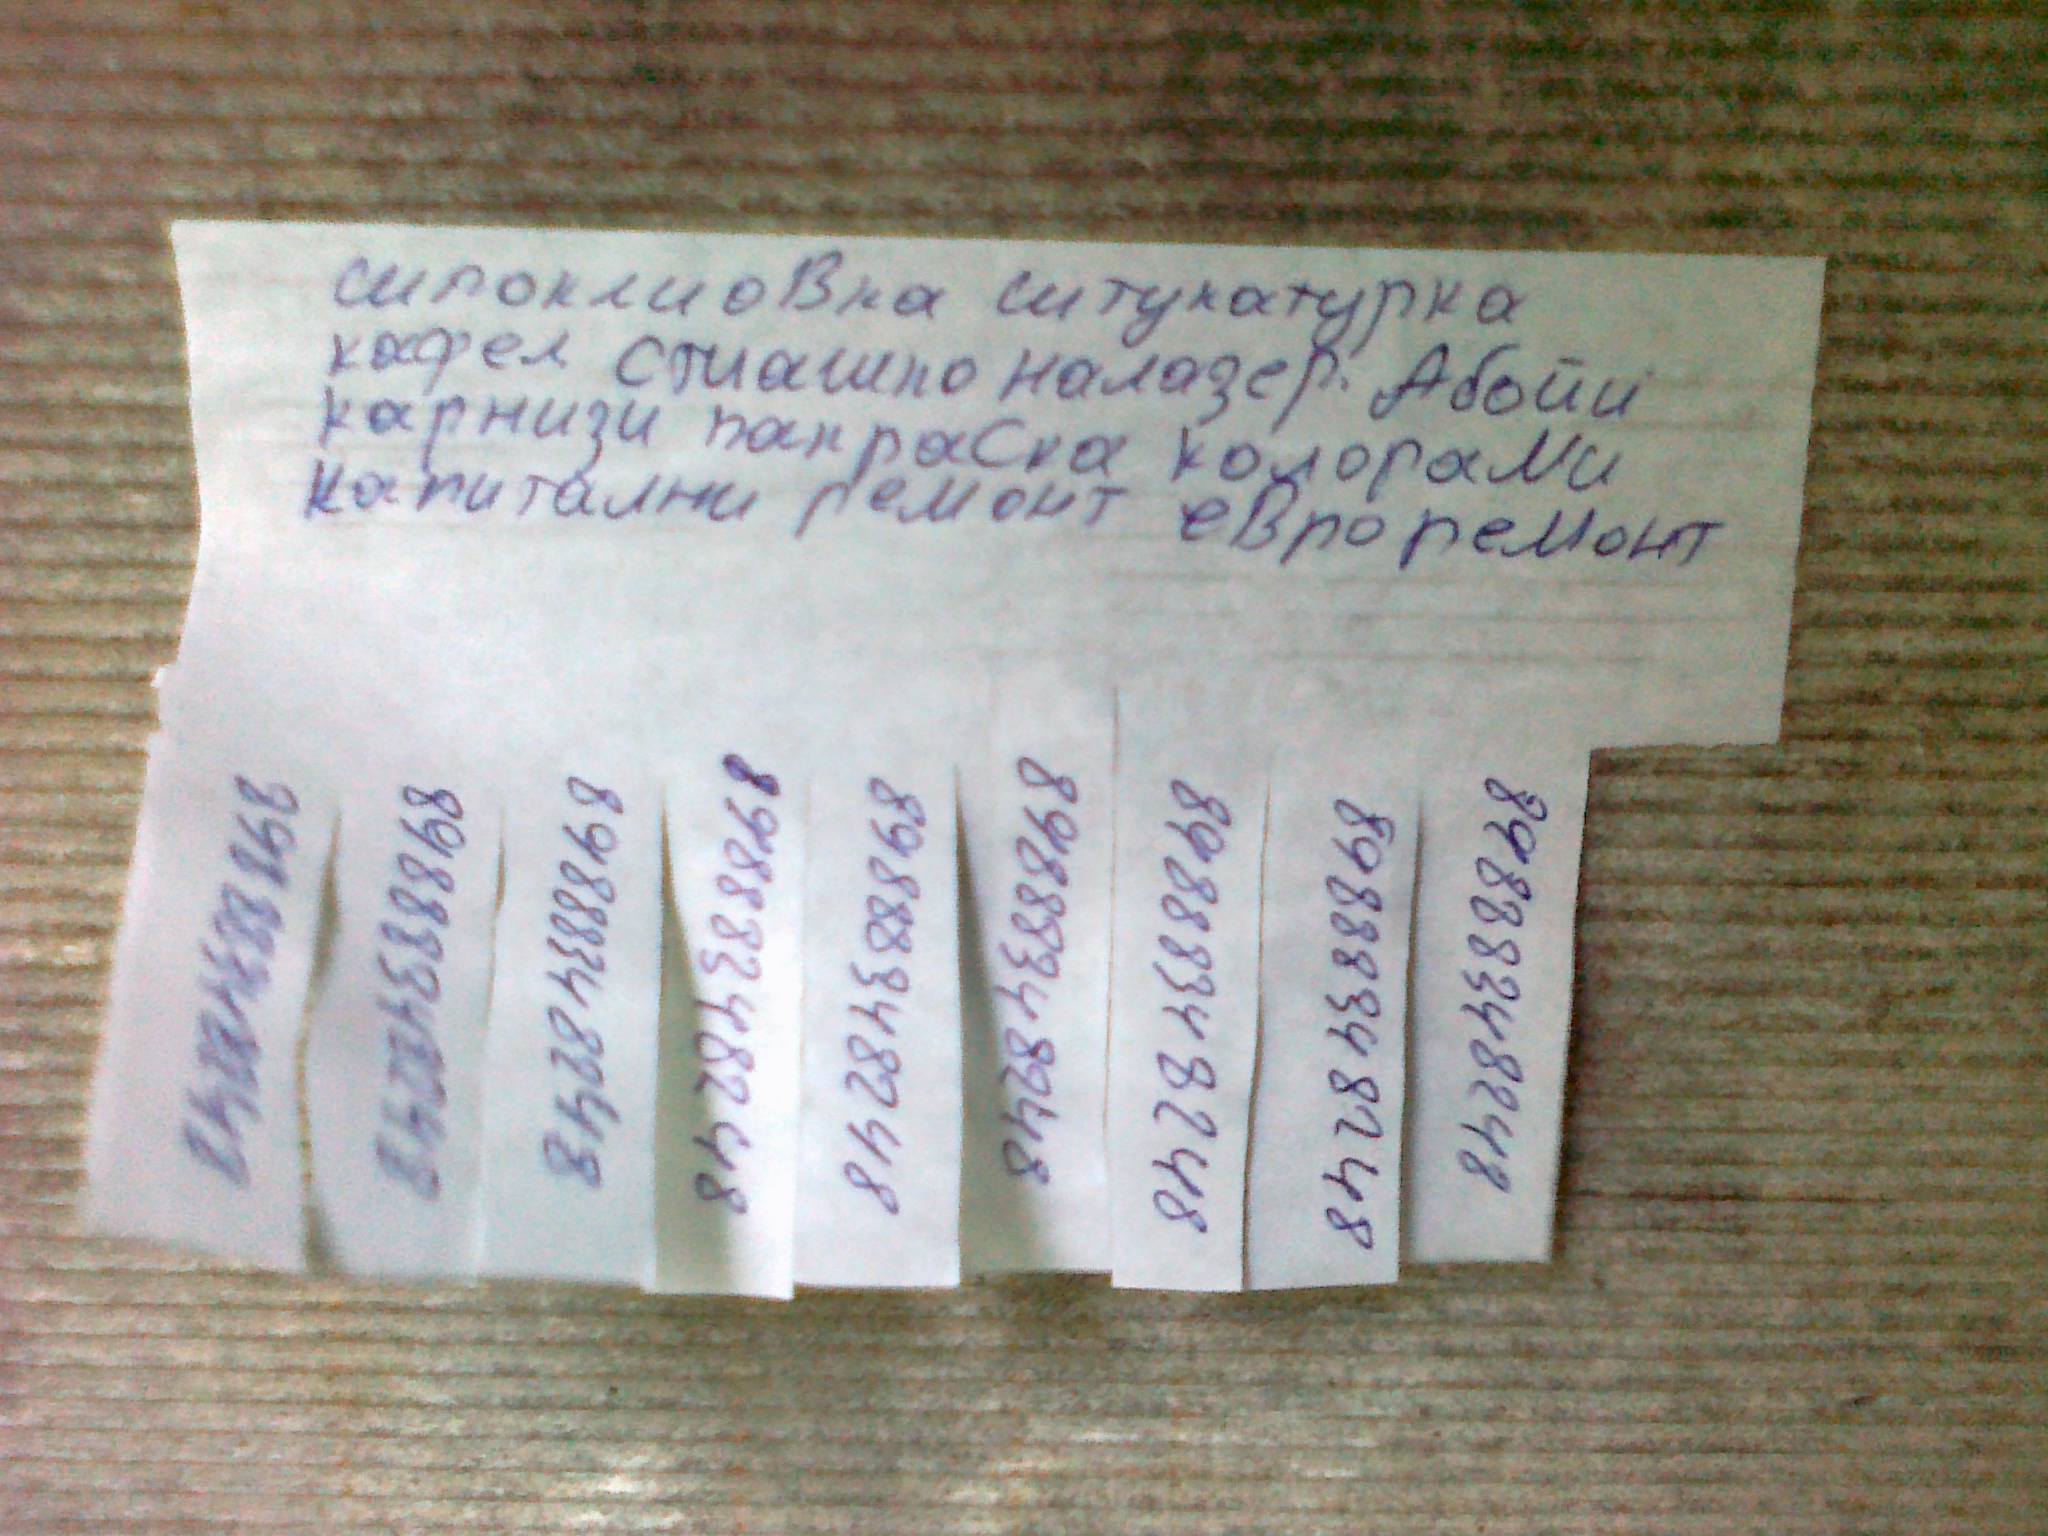 шпоклиоВка штукатурка
кафел стиашко налазер. Абойи
карнизи пакраСка колораМи
капитални ремонт еВроремонт
89888348248
89888348248
89888348248
89888348248
89888348248
89888348248
89888348248
89888348248